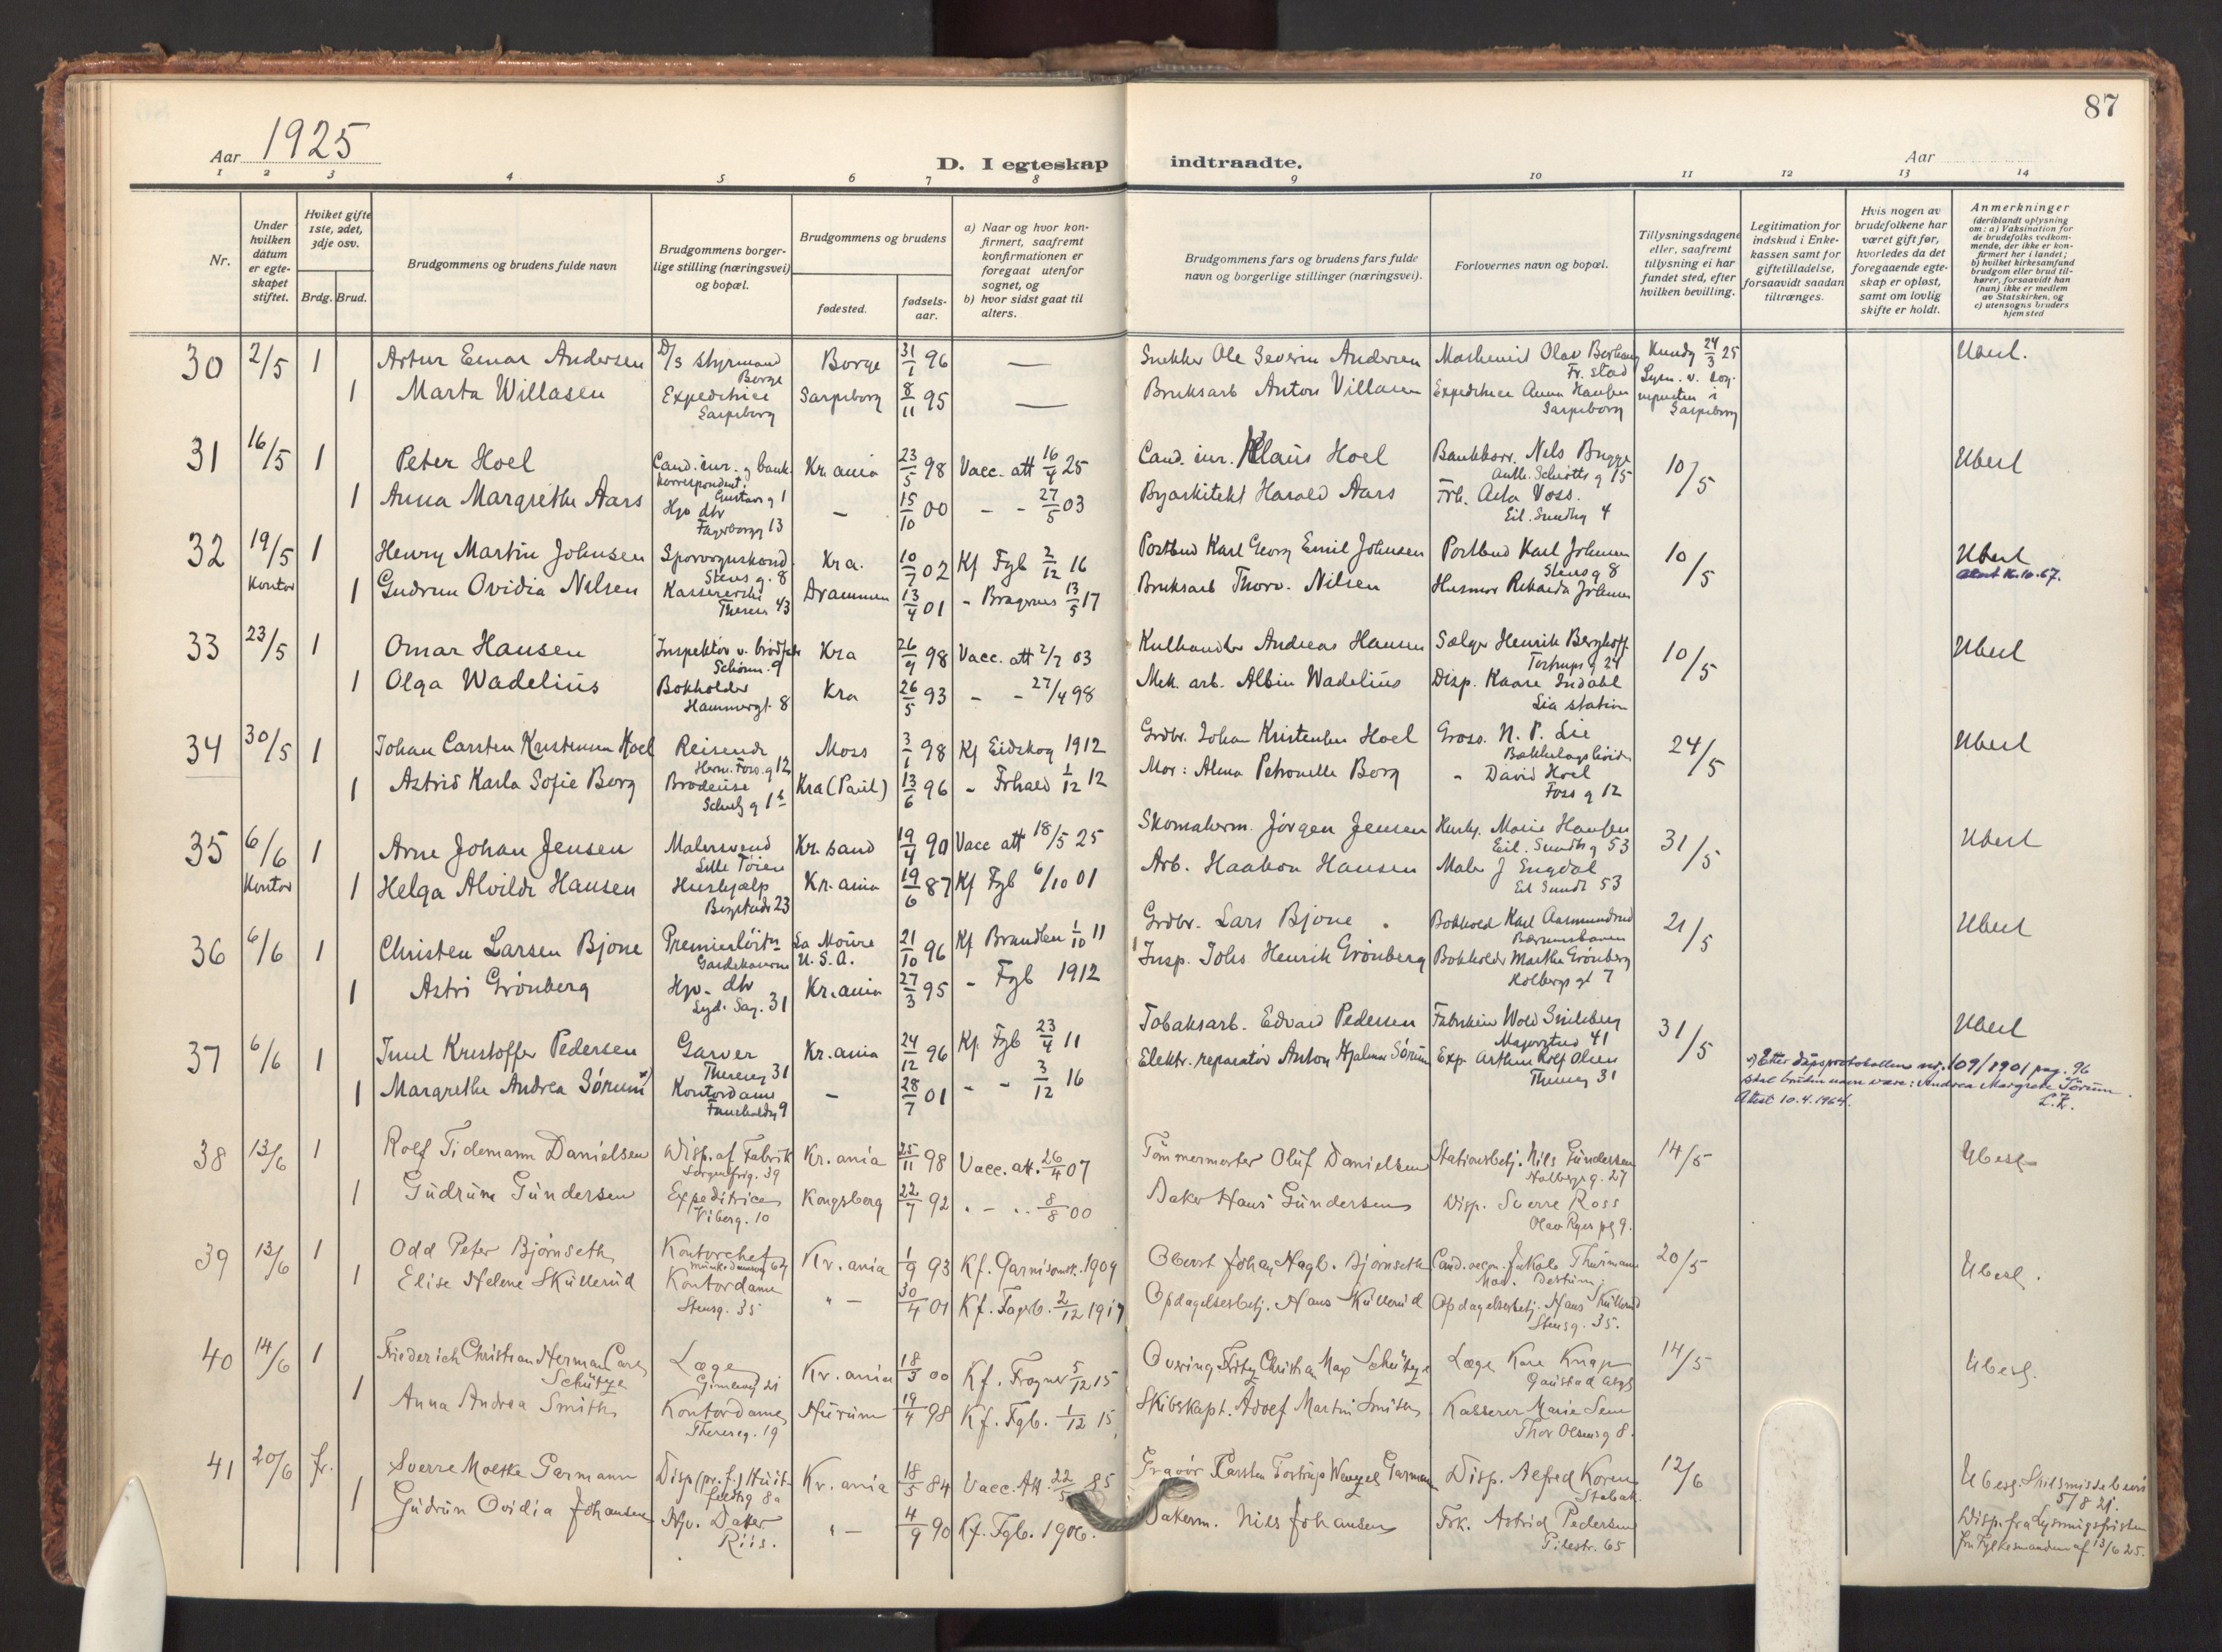 87
Aar 1925
D. I egteskap indtraadte.
Aar
1 2 3 4 5 6 7 8 9 10 11 12 13 14
Nr.
Under hvilken datum er egteskapet stiftet.
Hviket gifte 1ste, 2det, 3dje osv.
Brdg. Brud.
Brudgommens og brudens fulde navn
Brudgommens borgerlige stilling (næringsvei) og bopæl.
Brudgommens og brudens
fødested.
fødselsaar.
a) Naar og hvor konfirmert, saafremt konfirmationen er foregaat utenfor sognet, og
b) hvor sidst gaat til alters.
Brudgommens fars og brudens fars fulde navn og borgerlige stillinger (næringsvei).
Forlovernes navn og bopæl.
Tillysningsdagene eller, saafremt tillysning ei har fundet sted, efter hvilken bevilling.
Legitimation for indskud i Enkekassen samt for giftetilladelse, forsaavidt saadan tiltrænges.
Hvis nogen av brudefolkene har været gift før, hvorledes da det foregaaende egteskap er opløst, samt om lovlig skifte er holdt.
Anmerkninger
(deriblandt oplysning om: a) Vaksination for de brudefolks vedkommende, der ikke er konfirmert her i landet; b) hvilket kirkesamfund brudgom eller brud tilhører, forsaavidt han (hun) ikke er medlem av Statskirken, og c) utensogns bruders hjemsted
30 2/5 1 Artur Einar Andersen D/S styrmand Borge Borge 31/1 96 — Snekker Ole Severin Andersen Maskinist Olav Fr. stad Kundg 24/3 25 Ubesl.
1 Marta Willasen Expeditrice Sarpsborg Sarpsborg 8/11 95 — Bruksarb Anton Villasen Expeditrice Anna Hansen Sarpsborg Sarpsborg
31 16/5 1 Peter Hoel Cand. jur. og bank korrespondent. Gustavs g 1 Kr.ania 23/5 98 Vacc. att 16/4 25 Cand. jur. Klaus Hoel Bankkorr. Nils Bugge Anth. Schiøtts g 15 10/5 Ubesl
1 Anna Margrethe Aars Hjv dtr Fagerborgg 13 — 15/10 00 - - 27/5 03 Byarkitekt Harald Aars Frk. Asta Voss. Eil. Sundtsg 4
32 19/5 Kontor 1 Henry Martin Johnsen Sporvognskond. Stens g. 8 Kra. 10/7 02 Kf Fgb 2/12 16 Postbud Karl Georg Emil Johnsen Postbud Karl Johnsen Stens g 8 10/5 Ubesl
Attest 16.10.67.
1 Gudrun Ovidia Nilsen Kassererske Theres 43 Drammen 13/4 01 - Bragernes 13/5 17 Bruksarb Thorv. Nilsen Husmor Rikarda Johnsen
33 23/5 1 Omar Hansen Inspektør v. brødfabr Schønn. 9 Kra 26/9 98 Vacc. att 2/7 03 Kulhandler Andreas Hansen Sælger Henrik Berghoff Tostrups g 24 10/5 Ubesl
1 Olga Wadelius Bokholder Hammergt 8 Kra 26/5 93 - - 27/4 98 Mek. arb. Albin Wadelius Disp. Kaare Indahl Lia station
34 30/5 1 Johan Carsten Kristensen Hoel Reisende Herm. Foss. g 12 Moss 3/1 98 Kf Eidskog 1912 Grdbr. Johan Kristensen Hoel Gross. N. P. Lie 24/5 Ubesl
1 Astrid Karla Sofie Borg Brodeuse Schultz g 1b Kra (Paul) 13/6 96 - Frhald 1/12 12 Mor: Alma Petronelle Borg „ David Hoel Foss g 12
35 6/6 Kontor 1 Arne Johan Jensen Malersvend Lille Tøien Kr.sand 19/4 90 Vacc att 18/5 25 Skomakerm. Jørgen Jensen Husbj. Marie Hansen Eil. Sundts g 53 31/5 Ubesl
1 Helga Alvilde Hansen Hushjælp Bogstadv 23 Kr.ania 19/6 87 Kf Fgb 6/10 01 Arb. Haakon Hansen Maler J Engdal Eil Sundt 53
36 6/6 1 Christen Larsen Bjone Premierløitn Gardekaserne La Moure U.S.A. 21/10 96 Kf Brandbu 1/10 11 Grdbr. Lars Bjone Bokhold Karl Aasmundrud Bærumsbanen 21/5 Ubesl
1 Astri Grönberg Hjv. dtr Lyd. Sag. 31 Kr.ania 27/3 95 - Fgb 1912 Insp. Johs Henrik Grönberg Bokholder Marthe Grönberg Holbergs gt 7
37 6/6 1 Juul Kristoffer Pedersen Garver Thereseg 31 Kr.ania 24/12 96 Kf. Fgb 23/4 11 Tobaksarb. Edvard Pedersen Fabrikeier Wold Majorstud 41 31/5 Ubesl
1 Margrethe Andrea Sörum x) Kontordame 9 — 28/7 01 - - 3/12 16 Elektr. reparatör Anton Hjalmar Sörum Exp. Arthur Rolf Olsen Thereseg 31
x) Etter dåpsprotokollens nr. 109/1901 pag. 96 skal brudens navn være: Andrea Margrete Sörum. Attest 10.4.1964. L.K.
38 13/6 1 Rolf Tidemann Danielsen Disp. af Fabrik Sorgenfrig. 39 Kr.ania 25/11 98 Vacc. att. 26/4 07 Tömmermester Oluf Danielsen Stationsbetj. Nils Gundersen Holbergs g. 27 14/5 Ubesl.
1 Gudrun Gundersen Expeditrice Vibesg. 10 Kongsberg 22/7 92 . - .. 8/8 00 Baker Hans Gundersen Disp. Sverre Ross Olav Ryes pl 9.
39 13/6 1 Odd Peter Bjørnseth Kontorchef Munkedamsv 67 Kr.ania 1/9 93 Kf. Garnisonsk. 1909 Oberst Johan Nagb. Bjørnseth Cand. oecon. Jakob Thurmann 20/5 Ubesl.
1 Elise Helene Skullerud Kontordame Stensg. 35 „ — 30/4 01 Kf. Fagerb. 2/12 1917 Opdagelsesbetj. Hans Skullerud Opdagelsesbetj. Hans Skullerud Stensg. 35.
40 14/6 1 Friederich Christian Herman Carl Schütze Læge Gimlevej 21 Kr.ania 18/3 00 Kf. Frogner 5/12 15 Overing Fritz Christian Max Schütze Læge Kare Knap Gaustad Asyl 14/5 Ubesl.
1 Anna Andrea Smith Kontordame Thereseg. 19 Hurum 19/4 98 Kf. Fgb. 1/12 15. Skibskapt. Adolf Martin Smith Kasserer Marie Sem Thor Olsens g 8.
41 20/6 fr. Sverre Moltke Garmann Disp (pr. f.) Huitfeldtsg 8a Kr.ania 18/5 84 Vacc. Att. 22/5 85 Gravør Karsten Tostrup Wenzel Garmann Disp. Alfred Koren Stabæk. 12/6 Ubesl. Skilsmissebevis 5/8 21.
1 Gudrun Ovidia Johansen Hjv. Datter Riis. „ — 4/9 90 Kf. Fgb. 1906. Bakerm. Nils Johansen Frk. Astrid Pedersen Pilestr. 65
Disp. fra Lysningsfristen fra Fylkesmanden af 13/6 25.